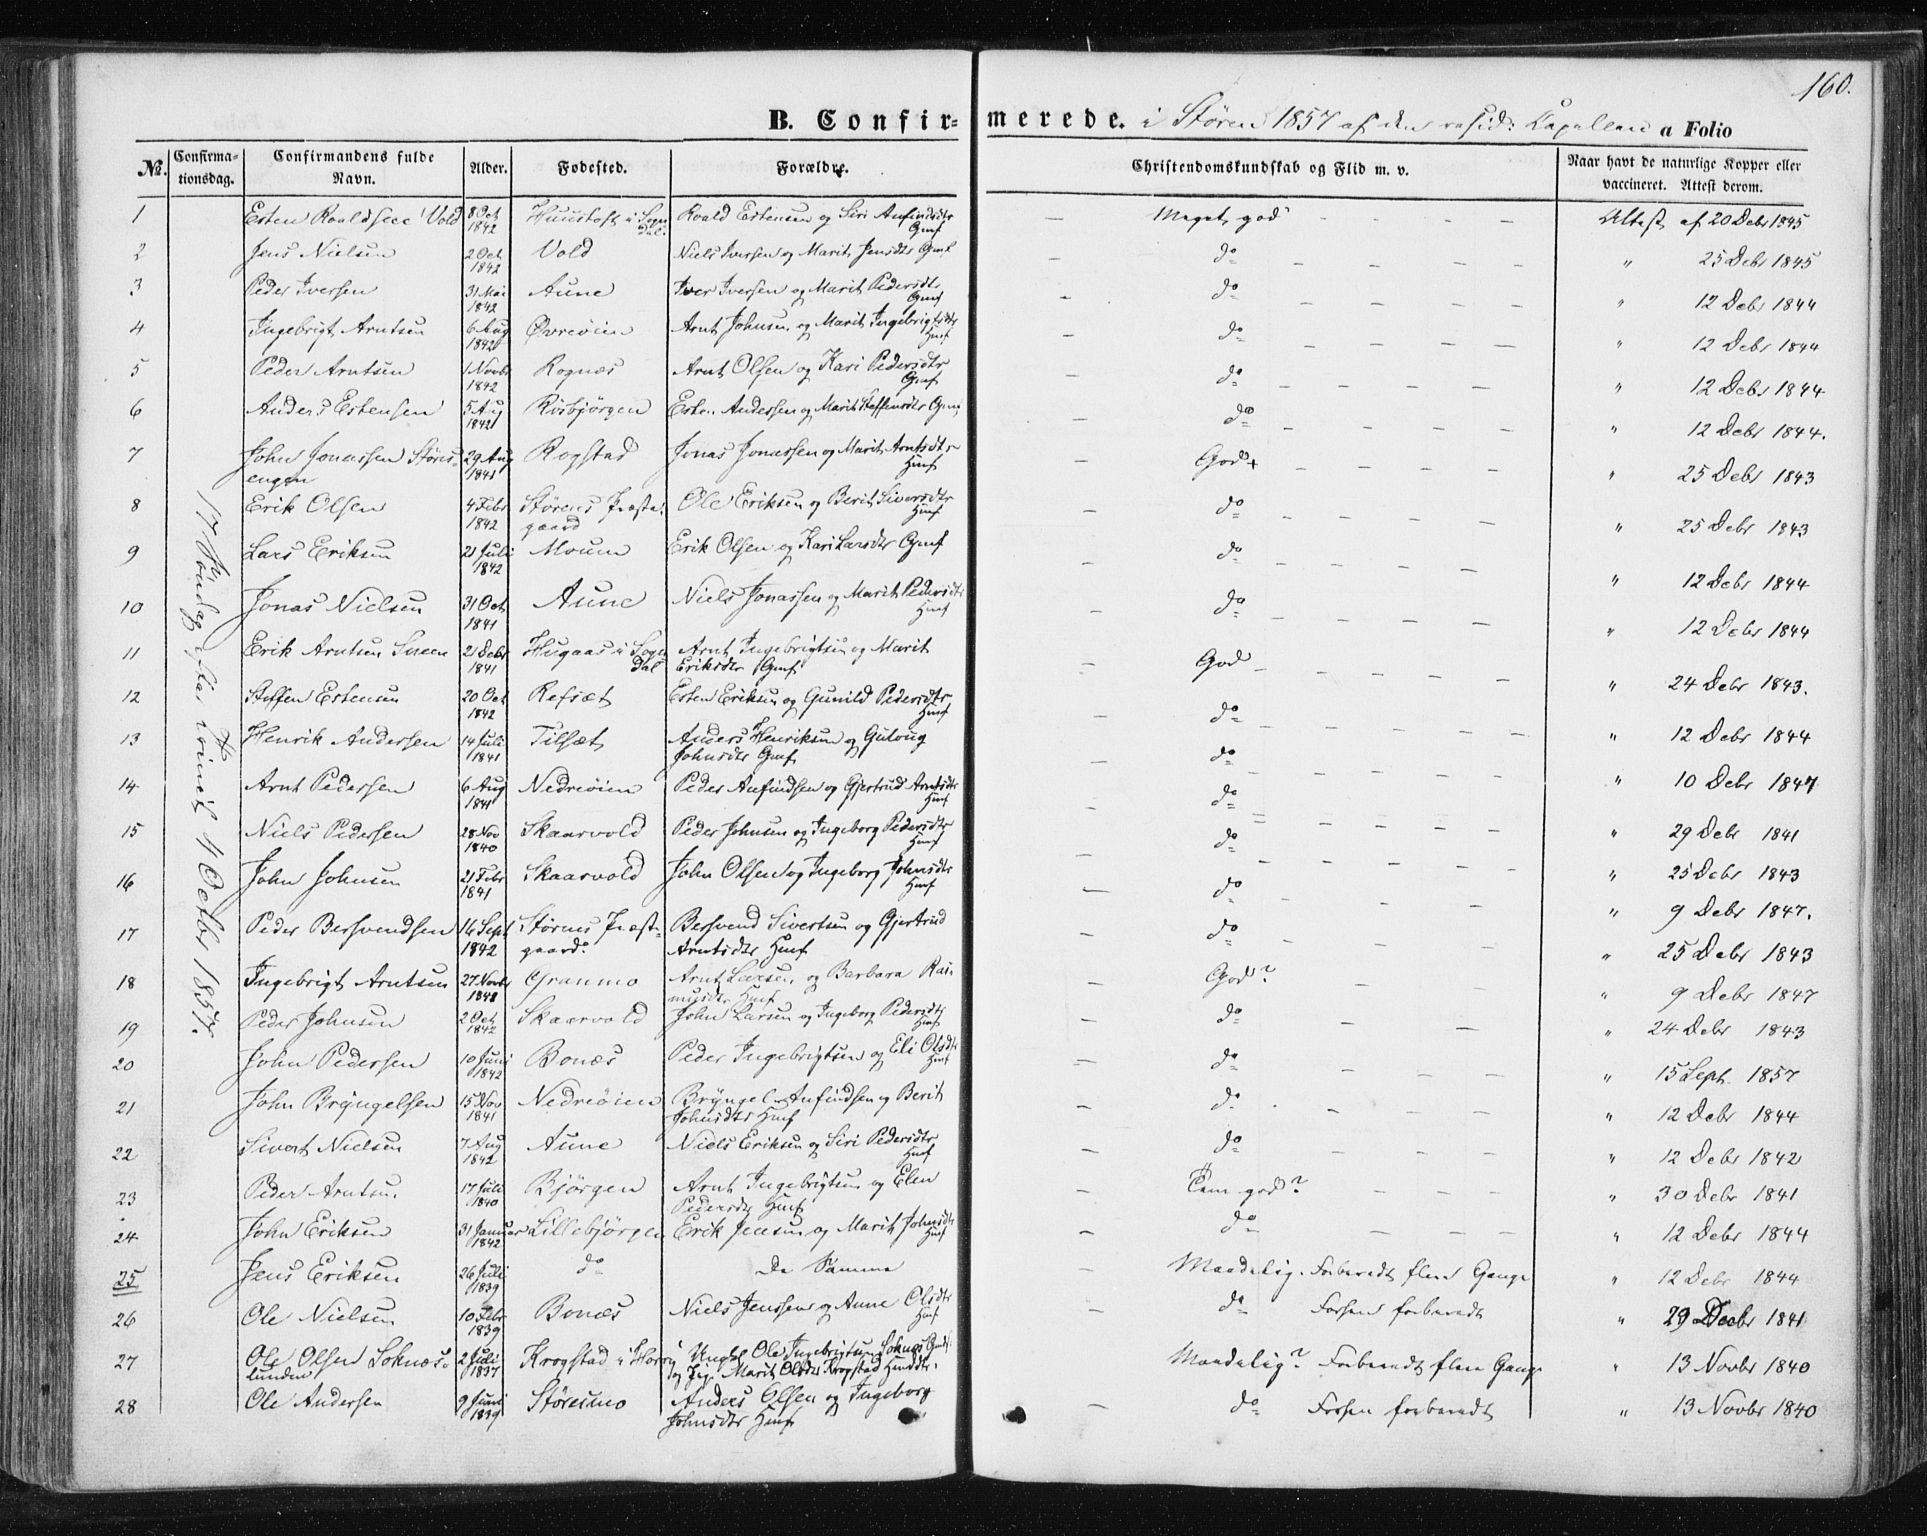 160.
B. Confirmerede. i Støren 1857 af den resid: Capellan a Folio
No. Confirmationsdag. Confirmandens fulde Navn. Alder. Fødested. Forældre. Christendomskundskab og Flid m. v. Naar havt de naturlige Kopper eller vaccineret. Attest derom.
17 Søndag efter Trinit 4 Octbr 1857.
1 Esten Roaldsen Vold 8 Oct 1842 i Sogndal Roald Estensen og Siri Anfindsdtr Gmf — Meget god — Attest af 20 Debr 1845
2 Jens Nielsen 2 Oct 1842 Vold Niels Iversen og Marit Jensdtr Gmf — do — " 25 Debr 1845
3 Peder Iversen 31 Mai 1842 Aune Iver Iversen og Marit Pedersdtr Gmf — do — " 12 Debr 1844
4 Ingebrigt Arntsen 6 Aug 1842 Øvreøien Arnt Johnsen og Marit Ingebrigtsdtr Huuf — do — " 12 Debr 1844
5 Peder Arntsen 1 Novbr 1842 Rognæs Arnt Olsen og Kari Pedersdtr Gmf — do — " 12 Debr 1844
6 Anders Estensen 5 Aug 1842 Rosbjørgen Esten Andersen og Marit Steffensdtr Gmf — do — " 12 Debr 1844.
7 John Jonassen Størensengen 29 Aug 1841 Rogstad Jonas Jonassen og Marit Arntsdtr Huuf — God+ — " 25 Debr 1843
8 Erik Olsen 4 Febr 1842 Størens Præstegaard Ole Eriksen og Berit Siversdtr Huuf — do — " 25 Debr 1843
9 Lars Eriksen 21 Juli 1842 Moum Erik Olsen og Kari Larsdtr Gmf — do — " 12 Debr 1844
10 Jonas Nielsen 31 Oct 1841 Aune Niels Jonassen og Marit Pedersdtr Huuf — do — " 12 Debr 1844
11 Erik Arntsen Sneen 21 Debr 1841 Hugaas i Sogndal Arnt Ingebrigtsen og Marit Eriksdtr Gmf — God — " 24 Debr 1843.
12 Steffen Estensen 20 Oct 1842 Refsæt Esten Eriksen og Gunild Pedersdtr Huuf — do — " 12 Debr 1844
13 Henrik Andersen 14 Juli 1841 Tilsæt Anders Henriksen og Guloug Johnsdtr Gmf — do — " 10 Debr 1847
14 Arnt Pedersen 6 Aug 1841 Nedreøien Peder Anfindsen og Gjertrud Arntsdtr Huuf — do — " 29 Debr 1841
15 Niels Pedersen 28 Nov 1840 Skaarvold Peder Johnsen og Ingeborg Pedersdtr Huuf — do — " 25 Debr 1843
16 John Johnsen 21 Febr 1841 Skaarvold John Olsen og Ingeborg Johnsdtr Huuf — do — " 9 Debr 1847.
17 Peder Bersvendsen 16 Sept 1842 Størens Præstgaard. Bersvend Sivertsen og Gjertrud Arntsdtr Huuf — do — " 25 Debr 1843
18 Ingebrigt Arntsen 27 Novbr Granmo Arnt Larsen og Barbara Rasmusdtr Huuf — God? — " 9 Debr 1847
19 Peder Johnsen 2 Oct 1842 Skaarvold John Larsen og Ingeborg Pedersdtr Huuf — do — " 24 Debr 1843
20 John Pedersen 10 Juni 1842 Bonæs Peder Ingebrigtsen og Eli Olsdtr Huuf — do — " 15 Sept. 1857
21 John Bryngelsen 15 Nov 1841 Nedreøien Bryngel Anfindsen og Berit Johnsdtr Huuf — do — " 12 Debr 1844
22 Sivert Nielsen 7 Aug 1842 Aune Niels Eriksen og Siri Pedersdtr Huuf — do — " 12 Debr 1842
23 Peder Arntsen 17 Juli 1840 Bjørgen Arnt Ingebrigtsen og Elen Pedersdtr Huuf — Tem god? — " 30 Debr 1841
24 John Eriksen 31 Januar 1842 Lillebjørgen Erik Jensen og Marit Johnsdtr Huuf — do — " 12 Debr 1844
25 Jens Eriksen 26 Juli 1839 do De Samme — Maadelig. Forberedt flere Gange " 12 Debr 1844
26 Ole Nielsen 10 Febr 1839 Bonæs Niels Jenssen og Anne Olsdtr Huuf — do Forhen forberedt " 29 Decbr 1841
27 Ole Olsen Soknæslunden 2 Juli 1837 Krogstad i Horg Ungk. Ole Ingebrigtsen Soknæs og Pig. Marit Olsdtr Krogstad — Maadelig? Forberedt flere Gange " 13 Novbr 1840
28 Ole Andersen 9 Juni 1839 Størenmo Anders Olsen og Ingeborg Johnsdtr Huuf — do Forhen forberedt " 13 Novbr 1840